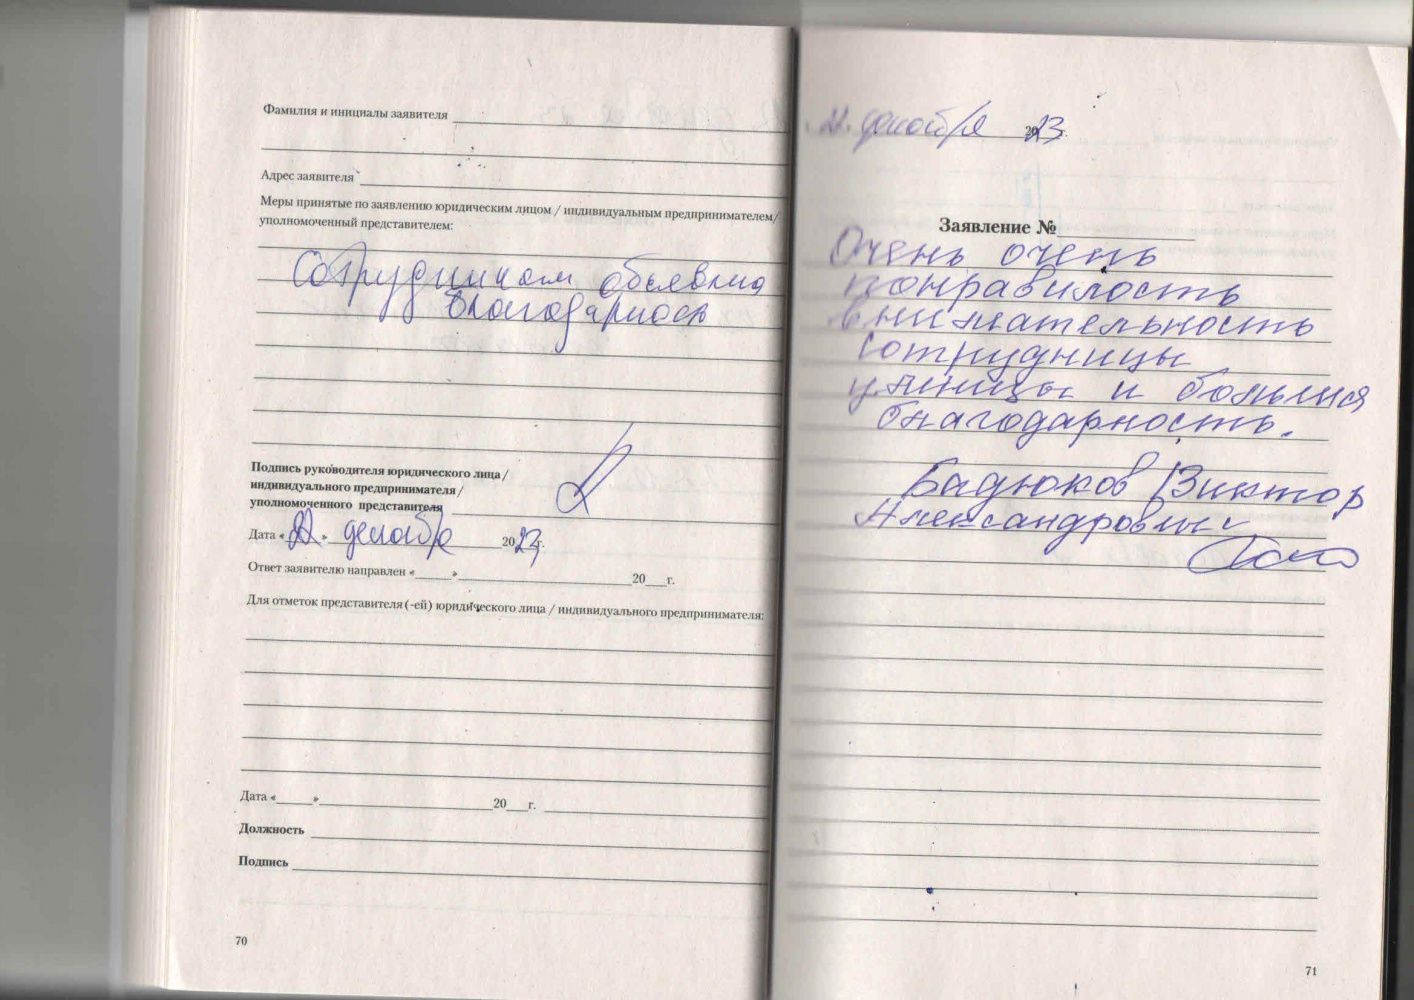 Фамилия и инициалы заявителя
Адрес заявителя
Меры принятые по заявлению юридическим лицом / индивидуальным предпринимателем/
уполномоченный представителем:
Сотрудникам объявлена
благодарность
Подпись руководителя юридического лица /
индивидуального предпринимателя /
уполномоченного представителя
Дата «22» декабря 2023г.
Ответ заявителю направлен «____»____ 20__г.
Для отметок представителя (-ей) юридического лица / индивидуального предпринимателя:
Дата «____»____ 20__г.
Должность
Подпись
70
22. декабря 2023г.
Заявление №
Очень очень
понравилость
внимательность
сотрудницы
и большая
благодарность.
Бадюков Виктор
Александрович
71